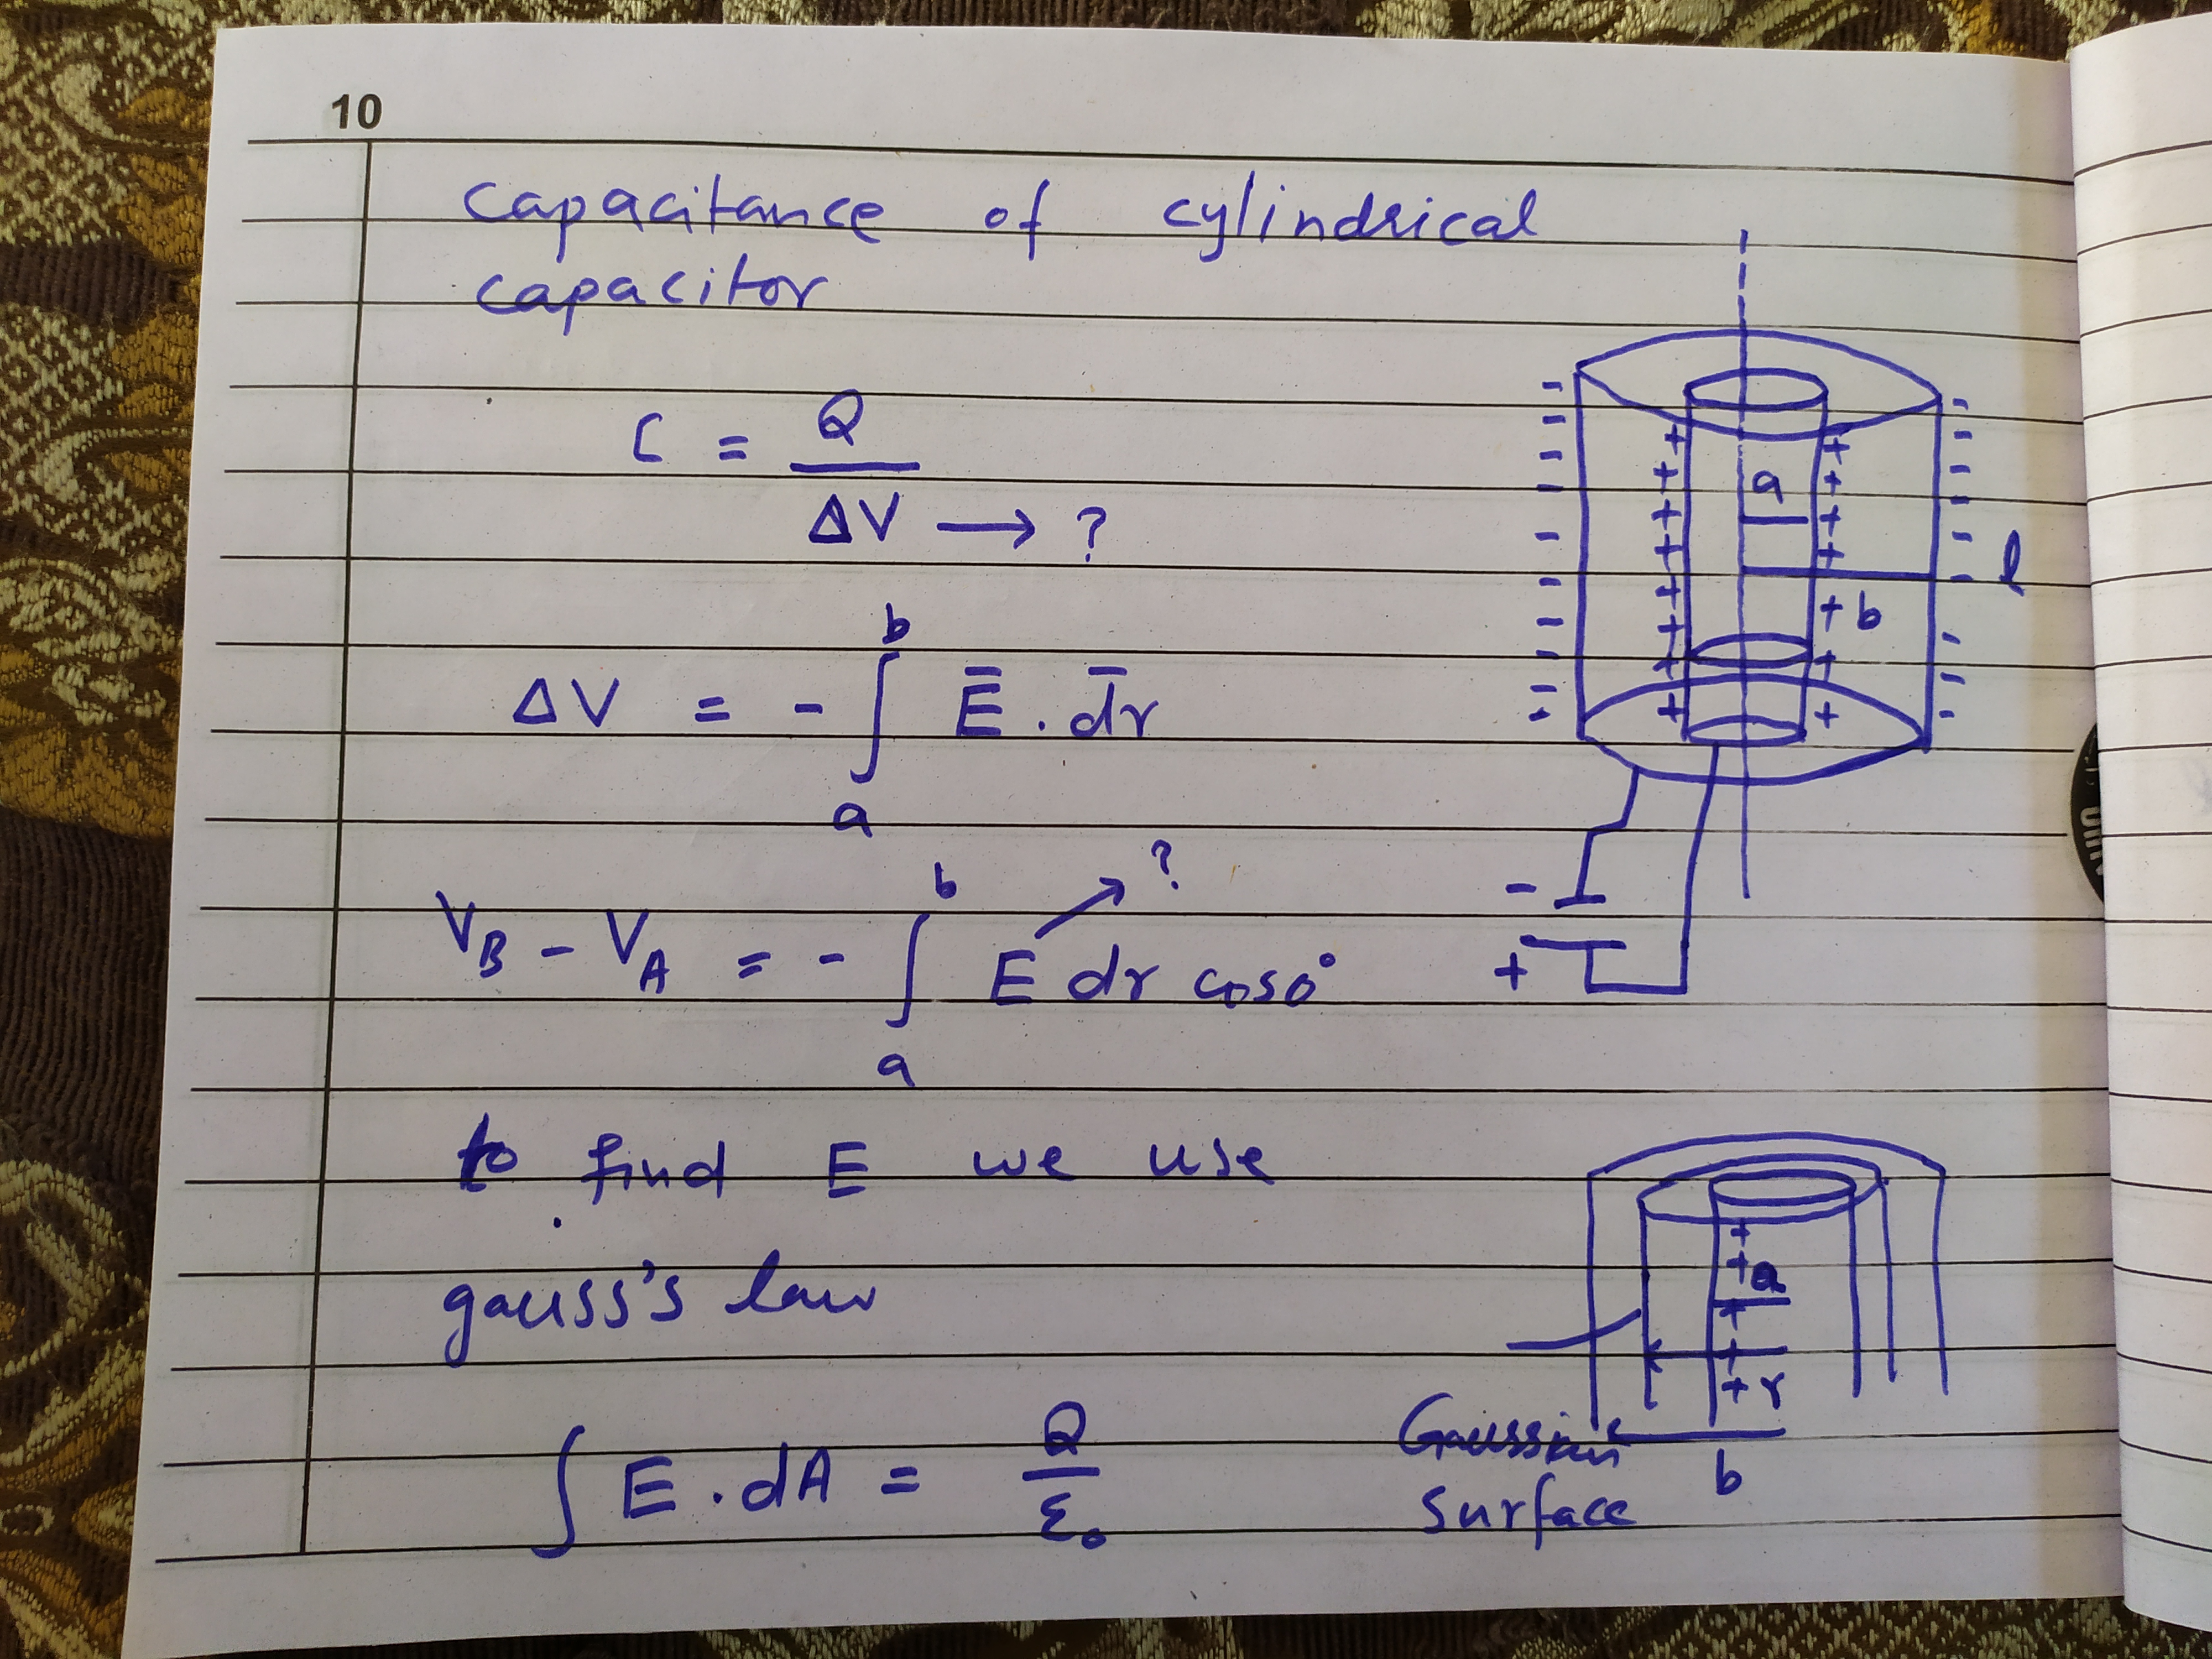 10
capacitance of cylindrical
capacitor
C = Q / ΔV → ?
ΔV = - ∫ₐᵇ E̅ . d̅r
V_B - V_A = - ∫ₐᵇ E dr cos0° → ?
to find E we use
gauss's law
∫ E . dA = Q / ε₀
a
+ b
l
-
+
a
r
b
Gaussian
surface